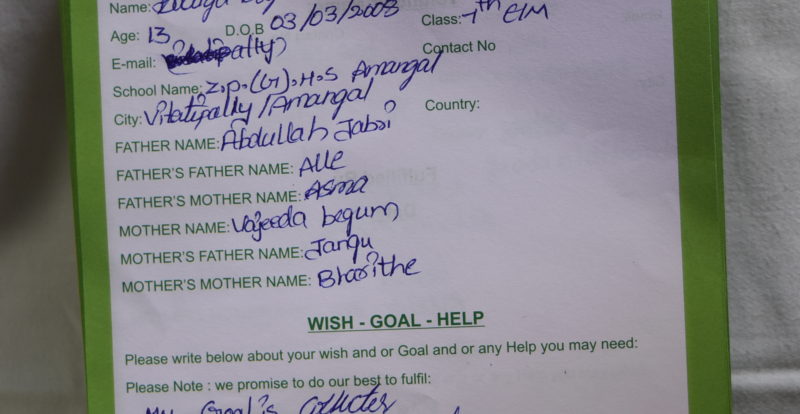 Name:
Age: 13 D.O.B 03/03/2008 Class: 7th EIM
E-mail: Contact No
School Name: Z.P.(G).H.S Amangal
City: Vitaipally/Amangal Country:
FATHER NAME: Abdullah Jabri
FATHER'S FATHER NAME: Alle
FATHER'S MOTHER NAME: Asma
MOTHER NAME: Vajeeda begum
MOTHER'S FATHER NAME: Jangu
MOTHER'S MOTHER NAME:
WISH - GOAL - HELP
Please write below about your wish and or Goal and or any Help you may need:
Please Note : we promise to do our best to fulfil:
My Goal is